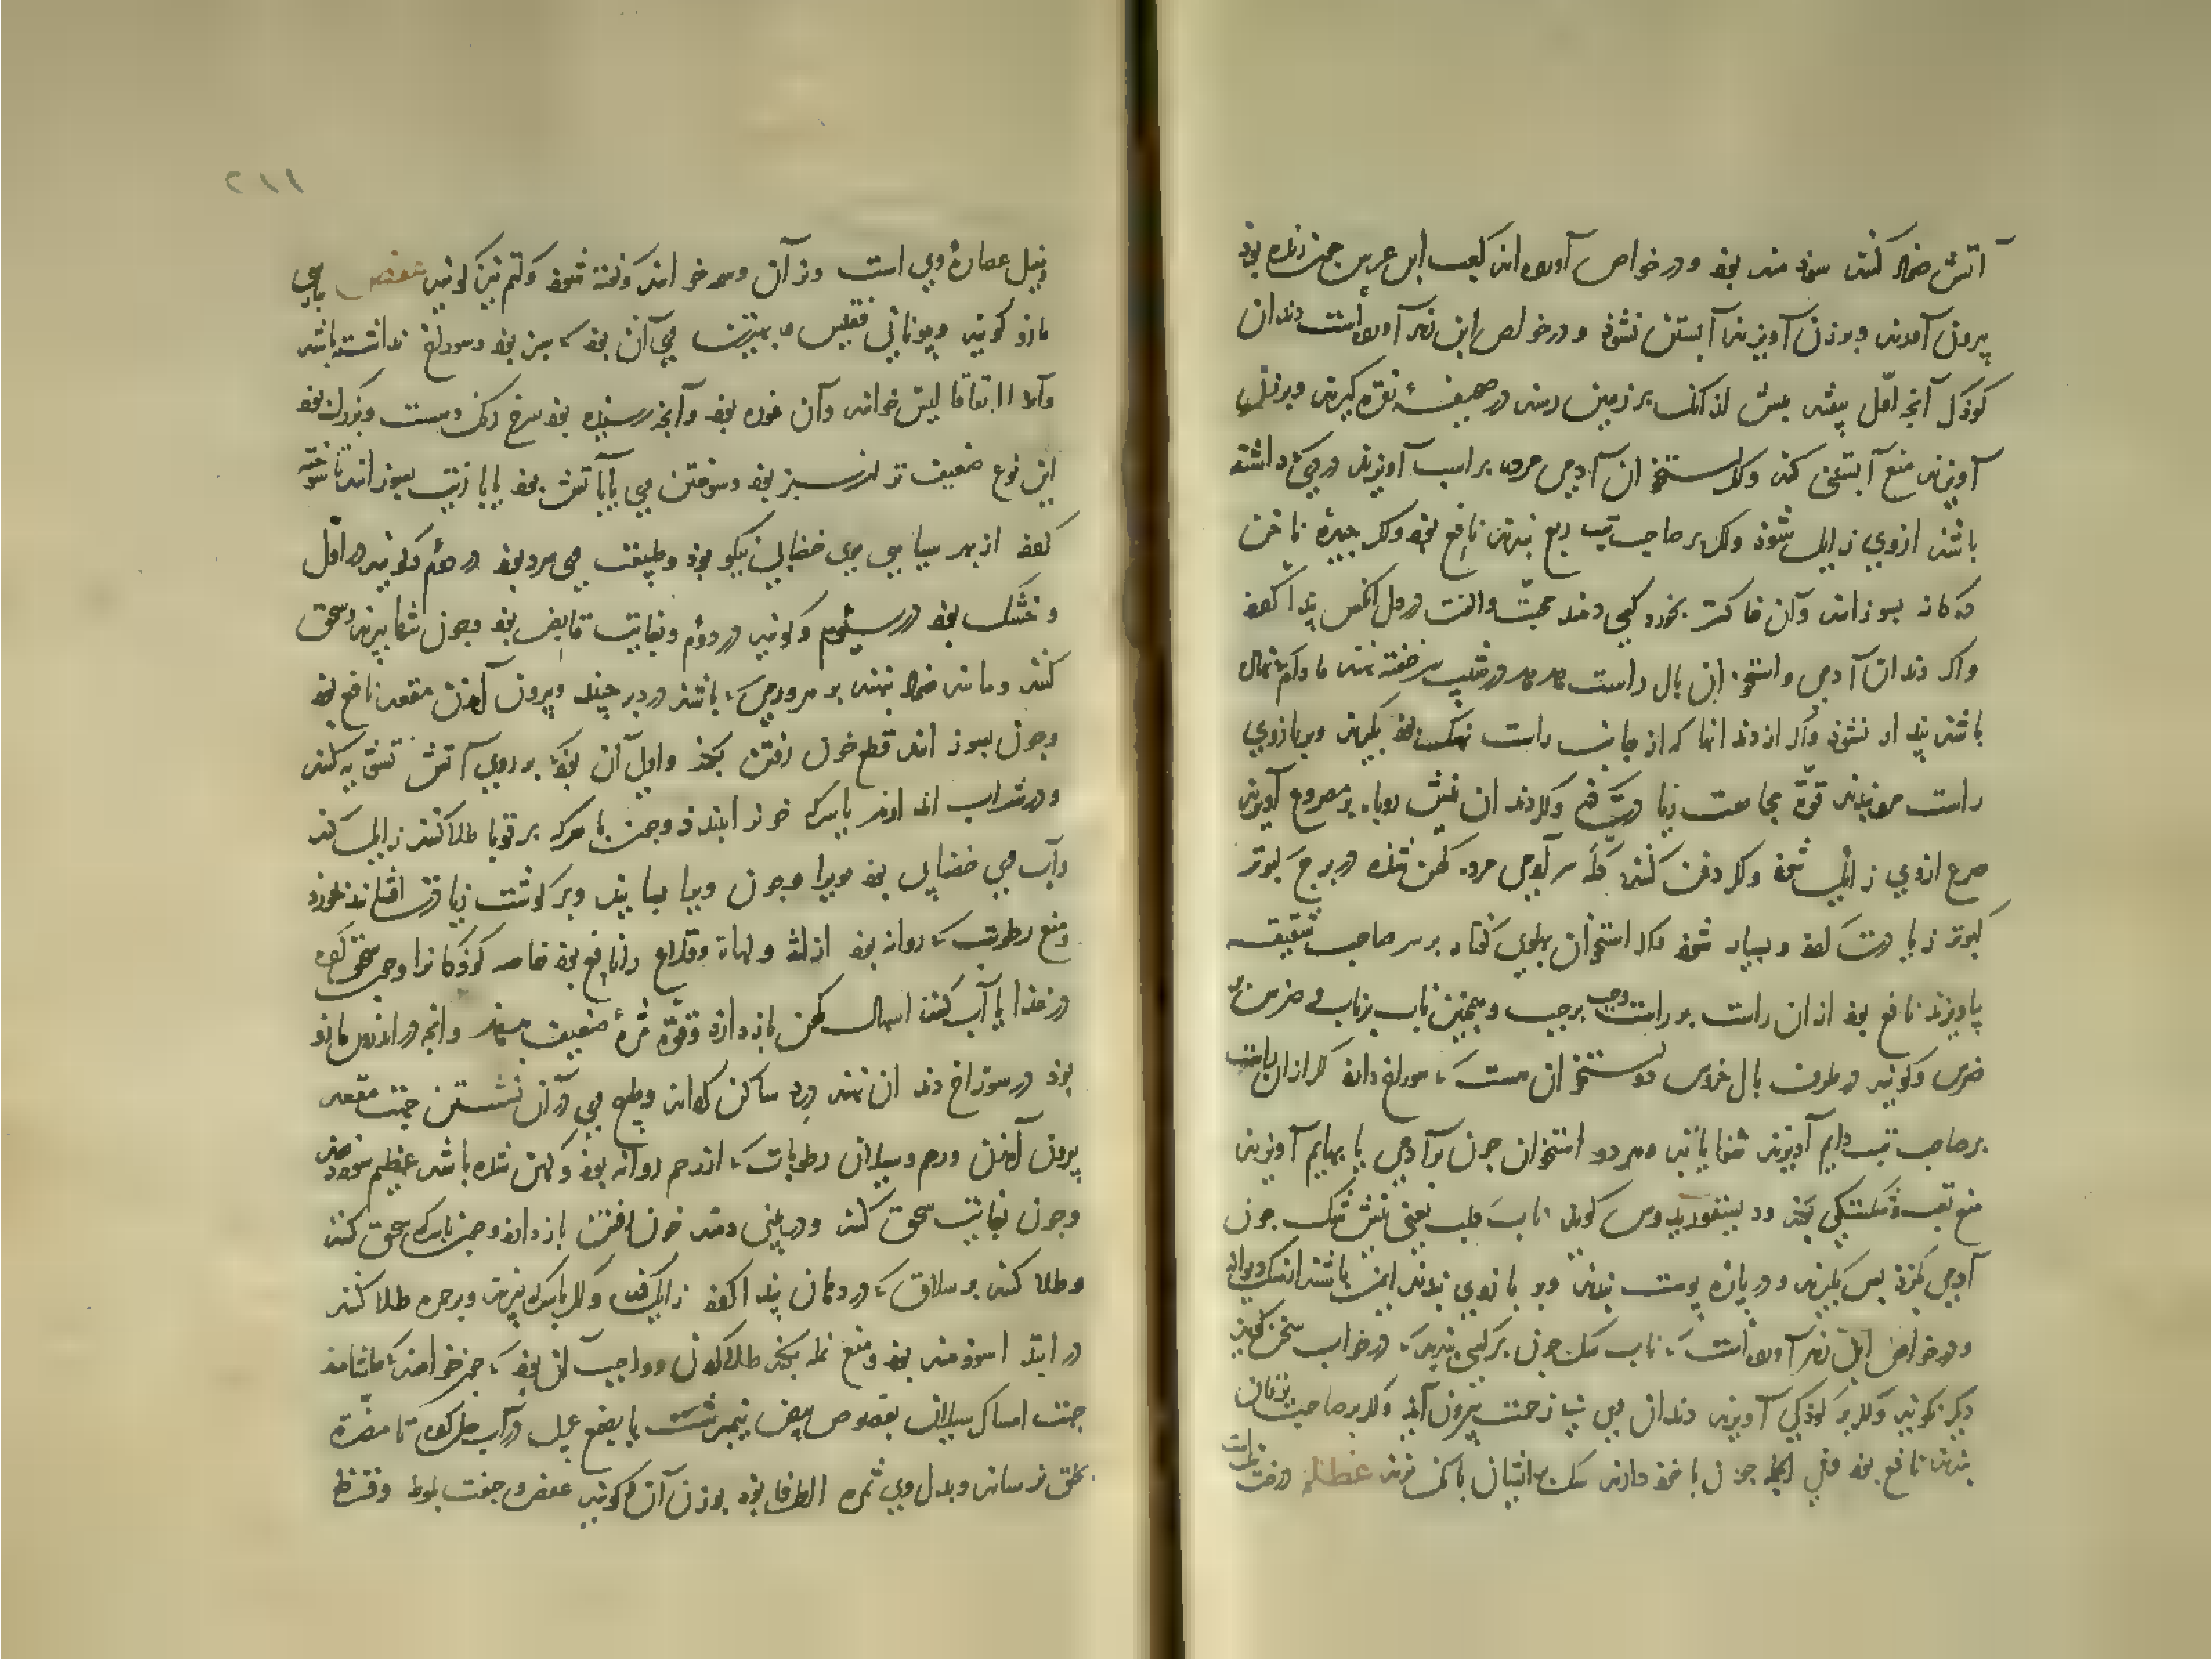 آتش ضماد کنند سود مند بود و در خواص آورده اند کعب ابن عرس چون زنده بود
بیرون آورند و بر زن آویزند آبستن نشود و در خواص ابن زهر آورده است دندان
کودک آنچه اول بیفتد پیش از آنک بر زمین رسد در صحیفهٔ نقره گیرند و بر زنان
آویزند منع آبستنی کند و اگر استخوان آدمی مرده بر اسب آویزند در پی داشته
باشد از وی زایل شود و اگر بر صاحب تب ربع بندند نافع بود و اگر چیزهٔ ناخن
دوگانه بسوزانند و آن خاکستر بخورد کسی دهند محبت و الفت در دل آنکس پیدا کند
و اگر دندان آدمی و استخوان بال راست هدهد در شیب سر خفته نهند مادام که نهاده
باشد بیدار نشود و اگر از دندانها که از جانب راست نهنگ بود بگیرند و بر بازوی
راست مرد بندند قوّة مجامعت زیادت کند و اگر دندان نیش روباه بر مصروع آویزند
صرع از وی زایل شود و اگر دفن کنند کلهٔ سر آدمی مرده کهن شده در برج کبوتر
کبوتر زیادت کند و بسیار شود و اگر استخوان پهلوی کفتار بر سر صاحب شقیقه
بیاویزند نافع بود از آن راست بر راست و چپ بر چپ و همچنین ناب بر ناب و ضرس بر
ضرس و گویند در طرف بال خروس دو استخوان هست که سوراخ دارد اگر از آن راست
بر صاحب تب دایم آویزند شفا یابد و هر دو استخوان چون بر آدمی یا بهایم آویزند
منع تعب و شکستگی بکند و دیسقوریدوس گوید ناب کلب یعنی نیش سگ چون
آدمی بگزد پس بگیرند و در پارهٔ پوست بندند و بر بازوی بندند ایمن باشد از سگ دیوانه
و در خواص ابن زهر آورده است که ناب سگ چون بر کسی بندند که در خواب سخن گوید
دیگر نگوید و اگر بر کودکی آویزند دندان وی بی زحمت بیرون آید و اگر بر صاحب یرقان
بندند نافع بود و اگر چون با خود دارند سگ بر ایشان بانگ نزند عظلم درخت
نیل عصارهٔ وی است و از آن وسمه خوانند و گفته شود و کتم نیز گویند عفص پارسی
مازو گویند و یونانی فقیس و بهترین وی آن بود که سبز بود و سوراخ نداشته باشد
و آنرا امقاقیلس خوانند و آن خورده بود و آنچه رسیده بود سرخ رنگ و سست و بزرگ بود
این نوع ضعیف تر از سبز بود و سوختن وی یا بآتش بود یا با زیت بسوزانند تا سوخته
گردد از بهر سیاهی موی خضابی نیکو بود و طبیعت وی سرد بود در دوم و گویند در اول
و خشک بود در سیوم و گویند در دوم و بغایت قابض بود و چون شفا بپزند و سحق
کنند و مانند ضماد بنهند بر مردمی که باشد در دبر چند و بیرون آمدن مقعد نافع بود
و چون بسوزانند قطع خون رفتن بکند و اول آن بود که بر روی آتش تشویه کنند
و در شراب اندازند یا سرکه خون را ببندد و چون با سرکه بر قوبا طلا کنند زایل کند
و آب وی خضابی بود مویرا و چون ویرا بسایند و بر گوشت زیادتی افشانند بخورد
و منع رطوبت که روانه بود از لثه و لهاة و قلاع را نافع بود خاصه کودکانرا و چون سحق کرده
در غذا یا آب کنند اسهال کهن باز دارد و قوّة ثمرهٔ ضعیف بدهد و آنچه در اندرون مازو
بود در سوراخ دندان نهند درد ساکن گرداند و طبیخ وی در آن نشستن جهت مقعد
بیرون آمدن و رم و سیلان رطوبات که از رحم روانه بود و کهن شده باشد عظیم سود دهد
و چون بغایت سحق کنند و در بینی دمند خون رفتن باز دارد و چون با سرکه سحق کنند
و طلا کنند بر سلاق که در دهان پیدا گردد زایل کند و اگر با سرکه بپزند و بر حمره طلا کنند
در ابتدا سودمند بود و منع نمله بکند طلا کردن و واجب آن بود که چون خواهند که بیاشامند
جهت امساک سیلان بقصوص بیض نیمبرشت یا بصمغ عربی در آب حل کرده تا مضرّة
بحلق نرساند و بدل وی ثمره الطرفا بود بوزن آن و گویند عفص جفت بلوط و قرظ
۲۱۱